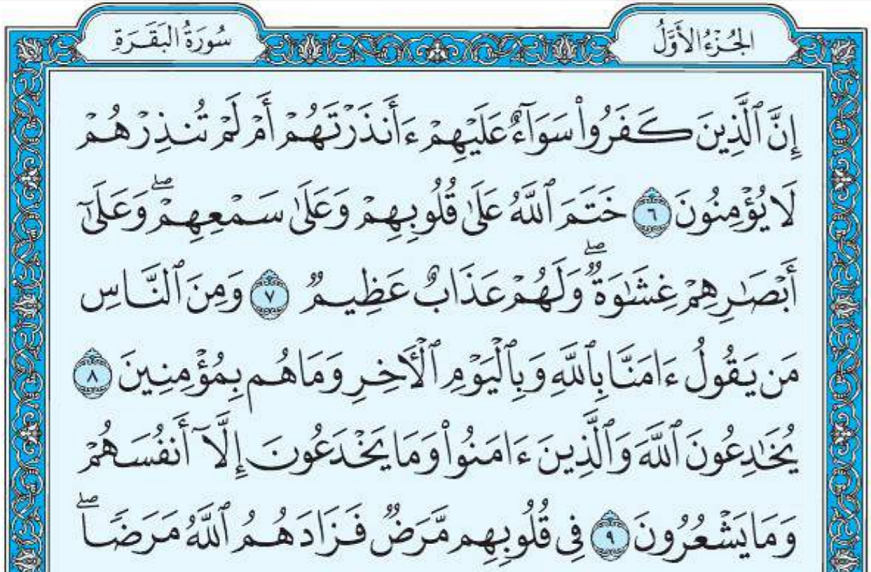 الجُزْءُ الأَوَّلُ
سُورَةُ البَقَرَةِ
إِنَّ ٱلَّذِينَ كَفَرُواْ سَوَآءٌ عَلَيۡهِمۡ ءَأَنذَرۡتَهُمۡ أَمۡ لَمۡ تُنذِرۡهُمۡ
لَا يُؤۡمِنُونَ ٦ خَتَمَ ٱللَّهُ عَلَىٰ قُلُوبِهِمۡ وَعَلَىٰ سَمۡعِهِمۡۖ وَعَلَىٰٓ
أَبۡصَٰرِهِمۡ غِشَٰوَةٞۖ وَلَهُمۡ عَذَابٌ عَظِيمٞ ٧ وَمِنَ ٱلنَّاسِ
مَن يَقُولُ ءَامَنَّا بِٱللَّهِ وَبِٱلۡيَوۡمِ ٱلۡأٓخِرِ وَمَا هُم بِمُؤۡمِنِينَ ٨
يُخَٰدِعُونَ ٱللَّهَ وَٱلَّذِينَ ءَامَنُواْ وَمَا يَخۡدَعُونَ إِلَّآ أَنفُسَهُمۡ
وَمَا يَشۡعُرُونَ ٩ فِي قُلُوبِهِم مَّرَضٞ فَزَادَهُمُ ٱللَّهُ مَرَضٗاۖ